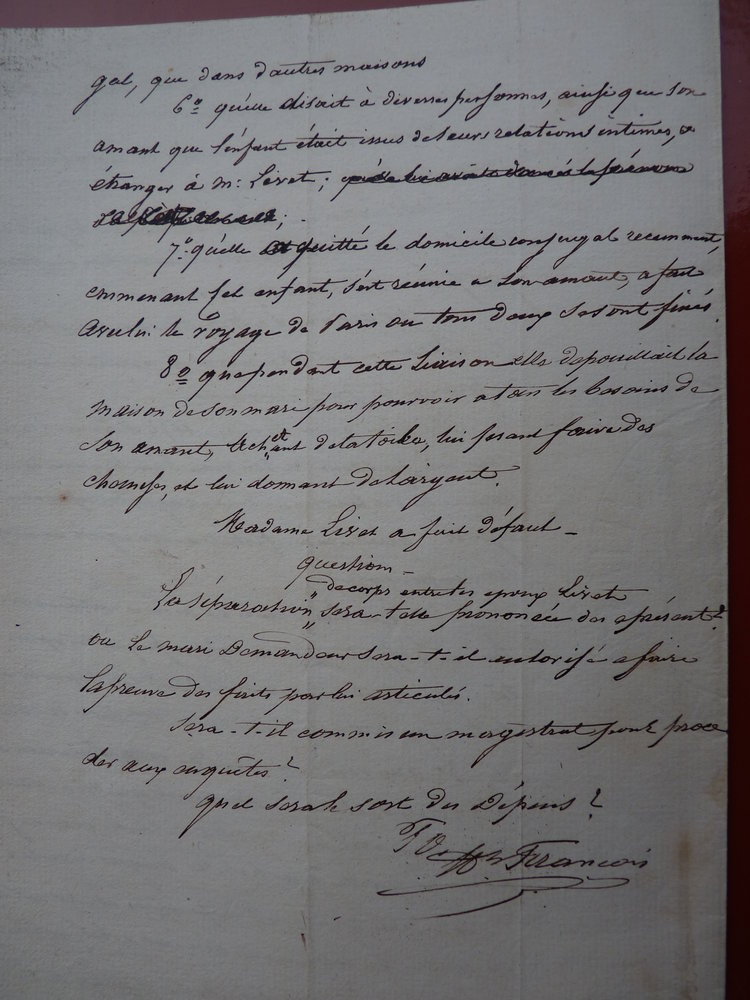 gal, que dans d'autres maisons
6o qu'elle disait à diverses personnes, ainsi que son
amant que l'enfant était issus de leurs relations intimes, &
étranger à Mr Livet;
7o qu'elle a quitté le domicile conjugal recemment,
emmenant cet enfant, s'est réunie a son amant, a fait
avec lui le voyage de Paris ou tous deux se sont fixés.
8o que pendant cette liaison elle dépouillait la
maison de son mari pour pourvoir a tous les besoins de
son amant, achetant de la toile, lui fesant faire des
chemises, et lui donnant de l'argent.
Madame Livet a fait défaut -
questions -
La séparation de corps entre les époux Livet
sera-t-elle prononcée des aprésent?
ou le mari Demandeur sera-t-il autorisé a faire
la preuve des faits par lui articulés.
sera-t-il commis un magistrat pour proce
der aux enquêtes?
quel sera le sort des Dépens?
François